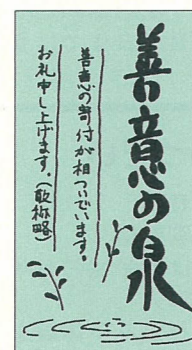 善意の泉
善意の寄付が相ついでいます。
お礼申し上げます。(敬称略)